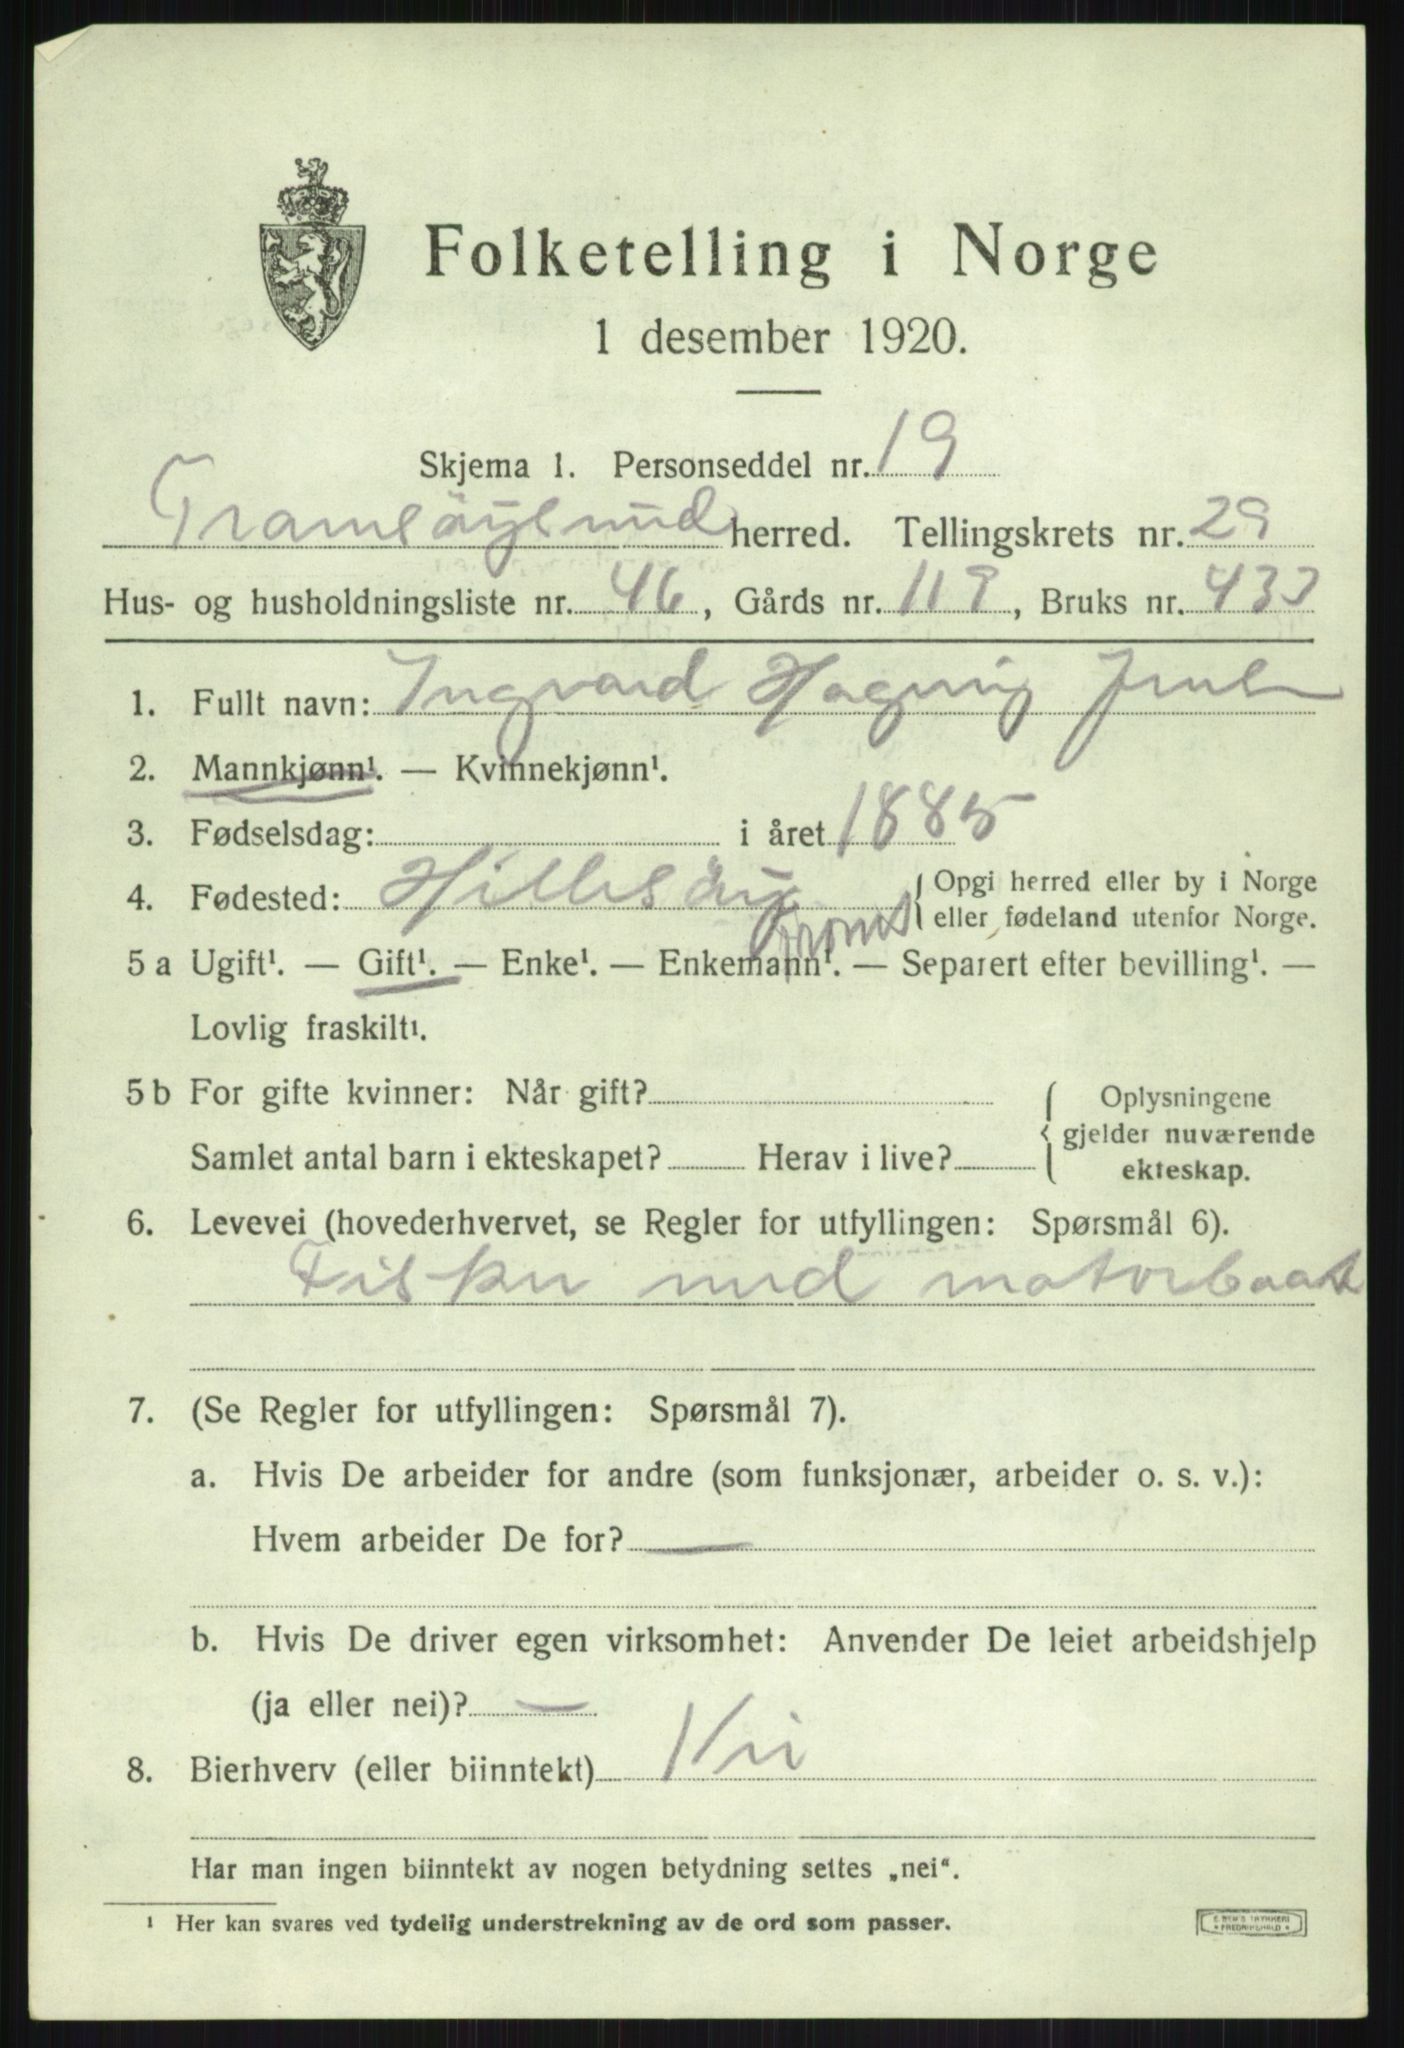 Folketelling i Norge
1 desember 1920.
Skjema 1. Personseddel nr. 19
Tromsöysund herred. Tellingskrets nr. 29
Hus- og husholdningsliste nr. 46, Gårds nr. 119, Bruks nr. 433
1. Fullt navn: Ingvard Jensen
2. Mannkjønn¹. — Kvinnekjønn¹.
3. Fødselsdag: i året 1885
4. Fødested: Hillesöy Troms { Opgi herred eller by i Norge
eller fødeland utenfor Norge.
5 a Ugift¹. — Gift¹. — Enke¹. — Enkemann¹. — Separert efter bevilling¹. —
Lovlig fraskilt¹.
5 b For gifte kvinner: Når gift?
Samlet antal barn i ekteskapet? Herav i live? { Oplysningene
gjelder nuværende
ekteskap.
6. Levevei (hovederhvervet, se Regler for utfyllingen: Spørsmål 6).
Fisker med motorbaat
7. (Se Regler for utfyllingen: Spørsmål 7).
a. Hvis De arbeider for andre (som funksjonær, arbeider o. s. v.):
Hvem arbeider De for? —
b. Hvis De driver egen virksomhet: Anvender De leiet arbeidshjelp
(ja eller nei)? —
8. Bierhverv (eller biinntekt) Nei
Har man ingen biinntekt av nogen betydning settes „nei“.
¹ Her kan svares ved tydelig understrekning av de ord som passer.